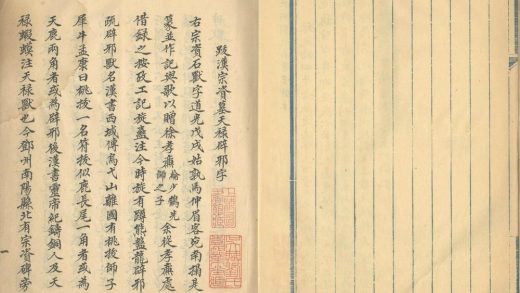 跋漢宗資墓天祿辟邪字
右宗資石獸字道光戊戌姑孰馬仲眉客宛南搨是
篆並作記與歌以贈徐孝燾少鶴先師之子余從孝燾處
借錄之按攷工記旋蟲注今時旋有蹲熊盤龍辟邪
疏辟邪獸名漢書西域傳烏弋山離國有桃拔師子
犀牛孟康曰桃拔一名符拔似鹿長尾一角者或為
天鹿兩角者或為辟邪後漢書靈帝紀鑄銅人及天
祿蝦蟆注天祿獸也今鄧州南陽縣北有宗資碑旁
一